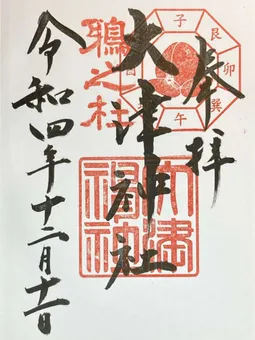 奉拝
大津神社
令和四年十二月十一日
子
艮
卯
巽
午
酉
大津
神社